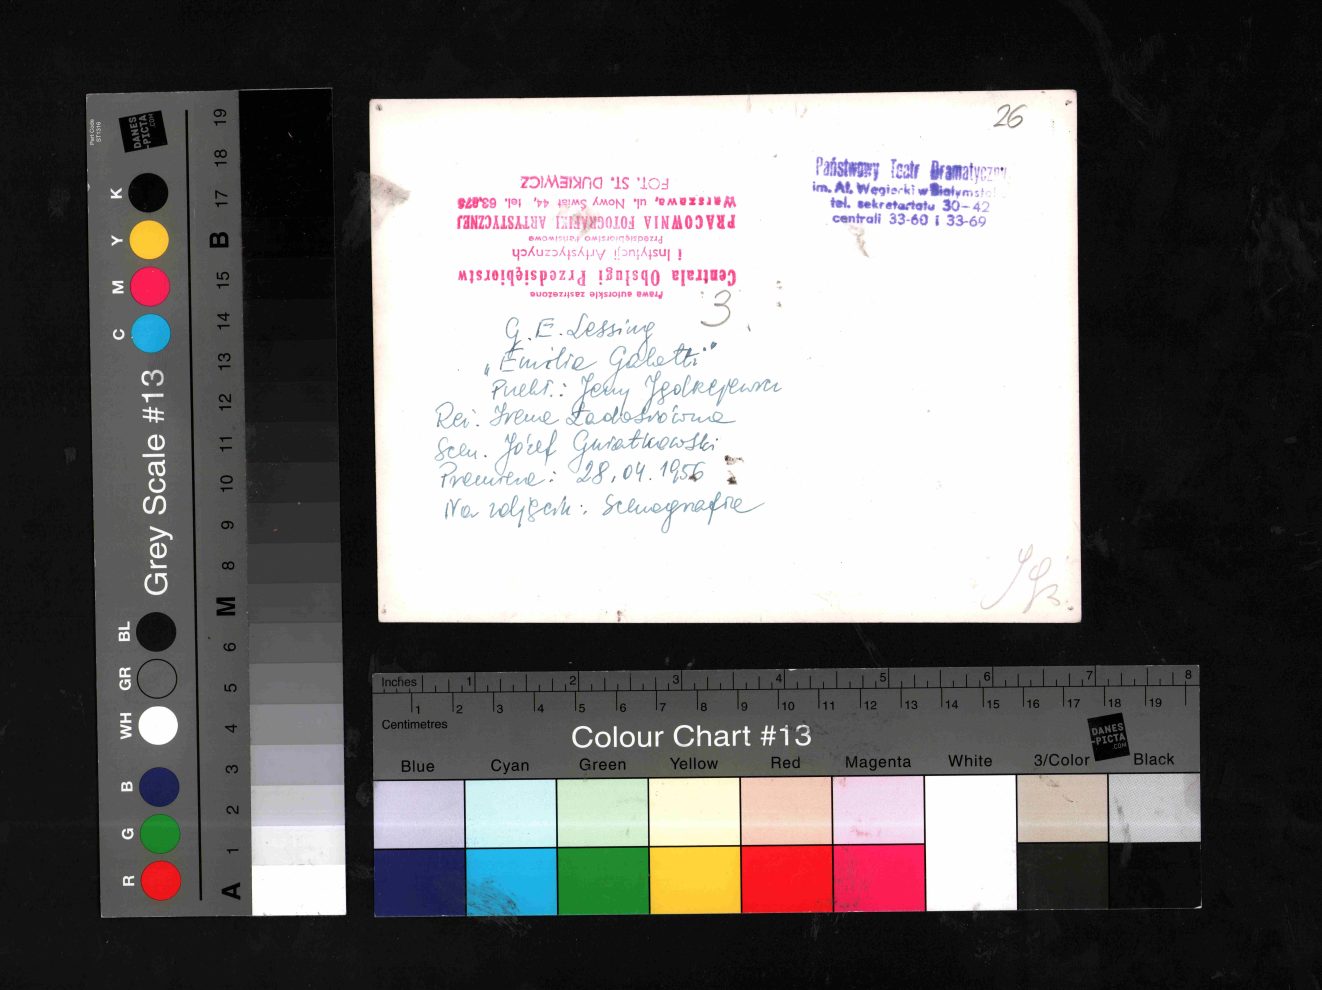 26
Państwowy Teatr Dramatyczny
im. Al. Węgierki w Białymsto
tel. sekretariatu 30-42
centrali 33-60 i 33-69
Prawa autorskie zastrzeżone
Centrala Obsługi Przedsiębiorstw
i Instytucji Artystycznych
Przedsiębiorstwo Państwowe
PRACOWNIA FOTOGRAFIKI ARTYSTYCZNEJ
Warszawa, ul. Nowy Świat 44, tel. 63.875
FOT. ST. DUKIEWICZ
3
G. E. Lessing
„Emilia Galotti"
Jerzy
Reż. Irena Ładosiówna
Scen. Józef Gwiatkowski
Premiera: 28.04.1956
Na zdjęciu: Scenografia
Part Code
ST1316
DANES
-PICTA
.COM
K
Y
M
C
Grey Scale #13
BL
GR
WH
B
G
R
19
18
17
B
15
14
13
12
11
10
9
8
M
6
5
4
3
2
1
A
Inches 1 2 3 4 5 6 7 8
1 2 3 4 5 6 7 8 9 10 11 12 13 14 15 16 17 18 19
Centimetres
Colour Chart #13
DANES
-PICTA
.COM
Blue Cyan Green Yellow Red Magenta White 3/Color Black